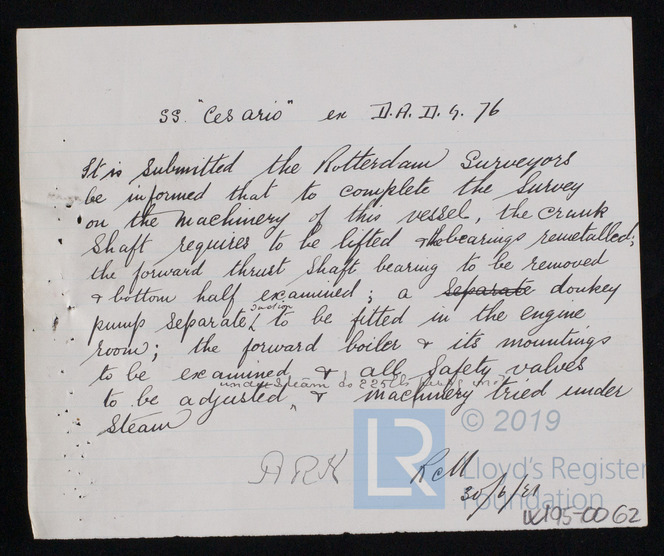 SS. "Cesario" ex D.A.D.G. 76
It is submitted the Rotterdam Surveyors
be informed that to complete the Survey
on the machinery of this vessel, the crank
shaft requires to be lifted & the bearings remetalled;
the forward thrust shaft bearing to be removed
& bottom half examined; a separate donkey
pump separate suction to be fitted in the engine
room; the forward boiler & its mountings
to be examined & all safety valves
under steam to 225 lbs
to be adjusted & machinery tried under
steam
ARK
RcM
30/6/21
© 2019
LR
Lloyd's Register
Foundation
W195-0062